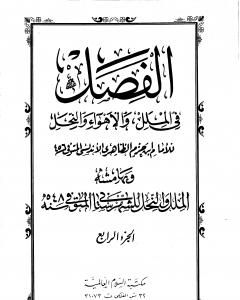 الفصل
في الملل والأهواء والنحل
للإمام ابن حزم الظاهري الأندلسي المتوفى ٤٥٦
وبهامشه
الملل والنحل للشهرستاني المتوفى سنة ٥٤٨
الجزء الرابع
مكتبة السلام العالمية
٣٢ ش الفلكي ت ٣١٠٧٣